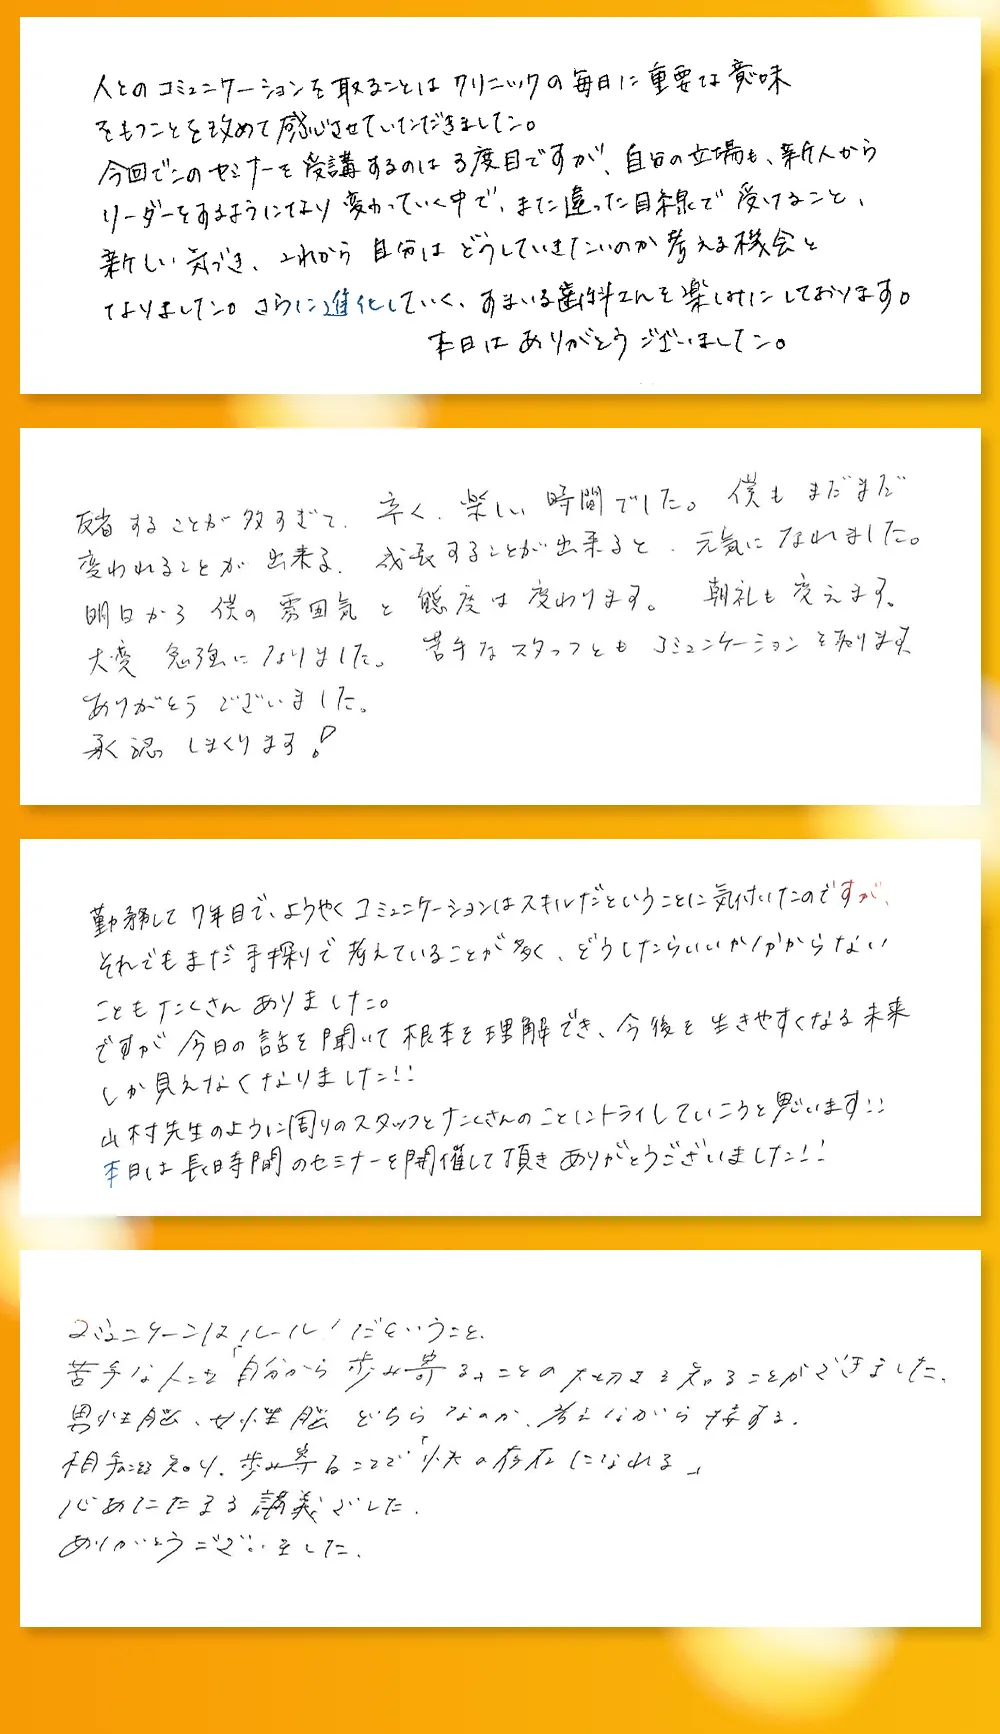 人とのコミュニケーションを取ることはクリニックの毎日に重要な意味
をもつことを改めて感心させていただきました。
今回でこのセミナーを受講するのは3度目ですが、自分の立場も、新人から
リーダーをするようになり変わっていく中で、また違った目線で受けること、
新しい気づき、これから自分はどうしていきたいのか考える機会と
なりました。さらに進化していく、すまいる歯科さんを楽しみにしております。
本日はありがとうございました。
反省することが多すぎて、辛く、楽しい時間でした。僕もまだまだ
変われることが出来る、成長することが出来ると、元気になれました。
明日から僕の雰囲気と態度は変わります。朝礼も変えます。
大変勉強になりました。苦手なスタッフともコミュニケーションを取ります
ありがとうございました。
承認しまくります!
勤務して7年目で、ようやくコミュニケーションはスキルだということに気付いたのですが、
それでもまだ手探りで考えていることが多く、どうしたらいいか分からない
こともたくさんありました。
ですが今日の話を聞いて根本を理解でき、今後を生きやすくなる未来
しか見えなくなりました!!
山村先生のように周りのスタッフとたくさんのことにトライしていこうと思います!!
本日は長時間のセミナーを開催して頂きありがとうございました!!
コミュニケーンはルール!だということ、
苦手な人こそ「自分から歩み寄る」ことの大切さを知ることができました。
男性脳、女性脳どちらなのか、考えながら接する。
相手を知り、歩み寄ることで「快の存在になれる」
心あたたまる講義でした。
ありがとうございました。